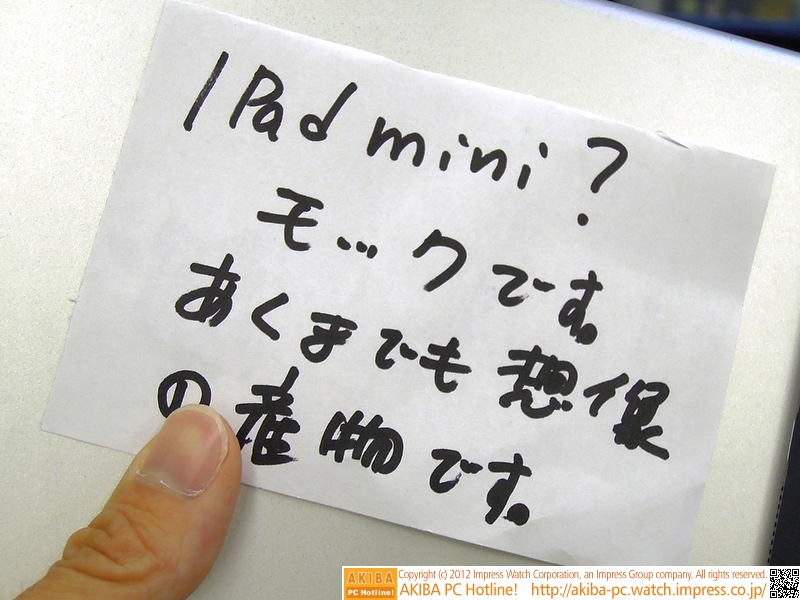 iPad mini?
モックです。
あくまでも想像
の産物です。
AKIBA PC Hotline!
Copyright (c) 2012 Impress Watch Corporation, an Impress Group company. All rights reserved.
AKIBA PC Hotline! http://akiba-pc.watch.impress.co.jp/